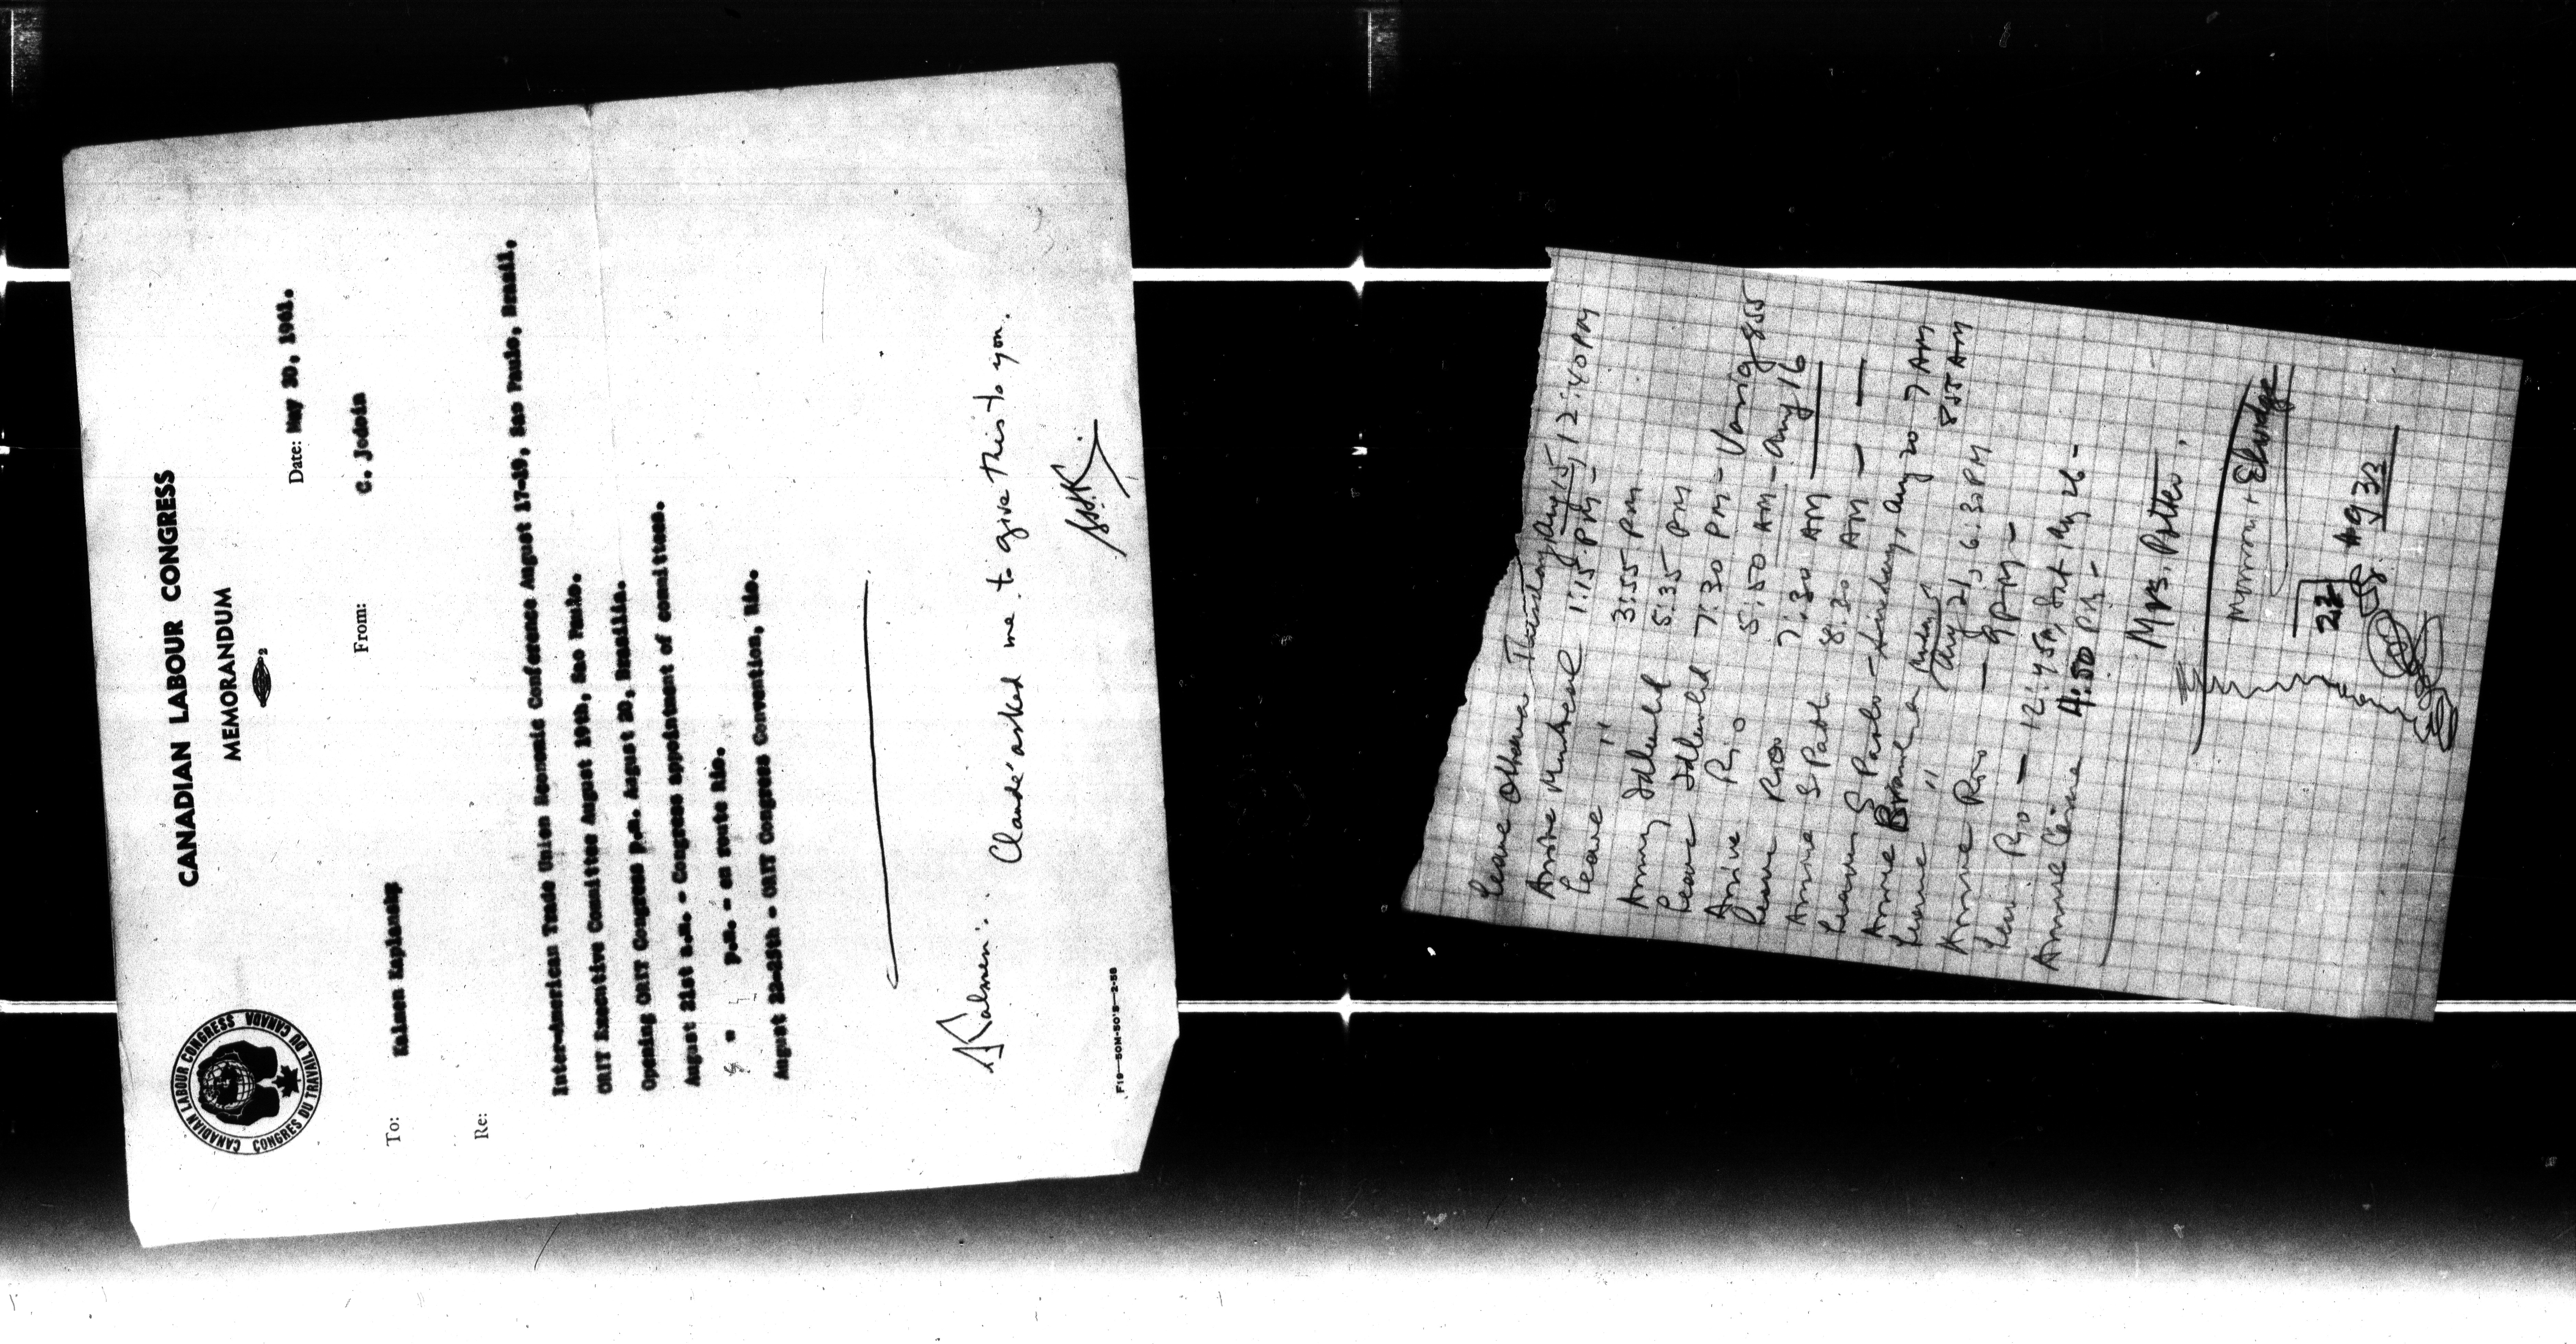 CANADIAN LABOUR CONGRESS
CONGRES DU TRAVAIL DU CANADA
CANADIAN LABOUR CONGRESS
MEMORANDUM
2
Date: May 30, 1961.
To: Kalmen Kaplansky
From: C. Jodoin
Re:
Inter-American Trade Union Economic Conference August 17-19, Sao Paulo, Brazil.
ORIT Executive Committee August 19th, Sao Paulo.
Opening ORIT Congress p.m. August 20, Brasilia.
August 21st a.m. - Congress appointment of committees.
" " p.m. - en route Rio.
August 22-25th - ORIT Congress Convention, Rio.
Kalmen: Claude asked me to give this to you.
F19—50M-50'S—2-58
Leave Ottawa Tuesday Aug 15, 12:40 PM
Arrive Montreal 1:15 PM -
Leave " 3:55 PM
Arriv Idlewild 5:35 PM
Leave Idlewild 7:30 PM - Varig 855
Arrive Rio 5:50 AM - Aug 16
Leave Rio 7:30 AM
Arrive S Paolo 8:30 AM - -
Leave S Paolo - Sunday, Aug 20 7 AM
Arrive 855 AM
Leave " Monday Aug 21, 6:30 PM
Arrive Rio - 9 PM -
Leav Rio - 12:45 Sat Aug 26 -
Arrive 4:50 PM -
Mrs. Potter.
Morrison + Elvidge
22